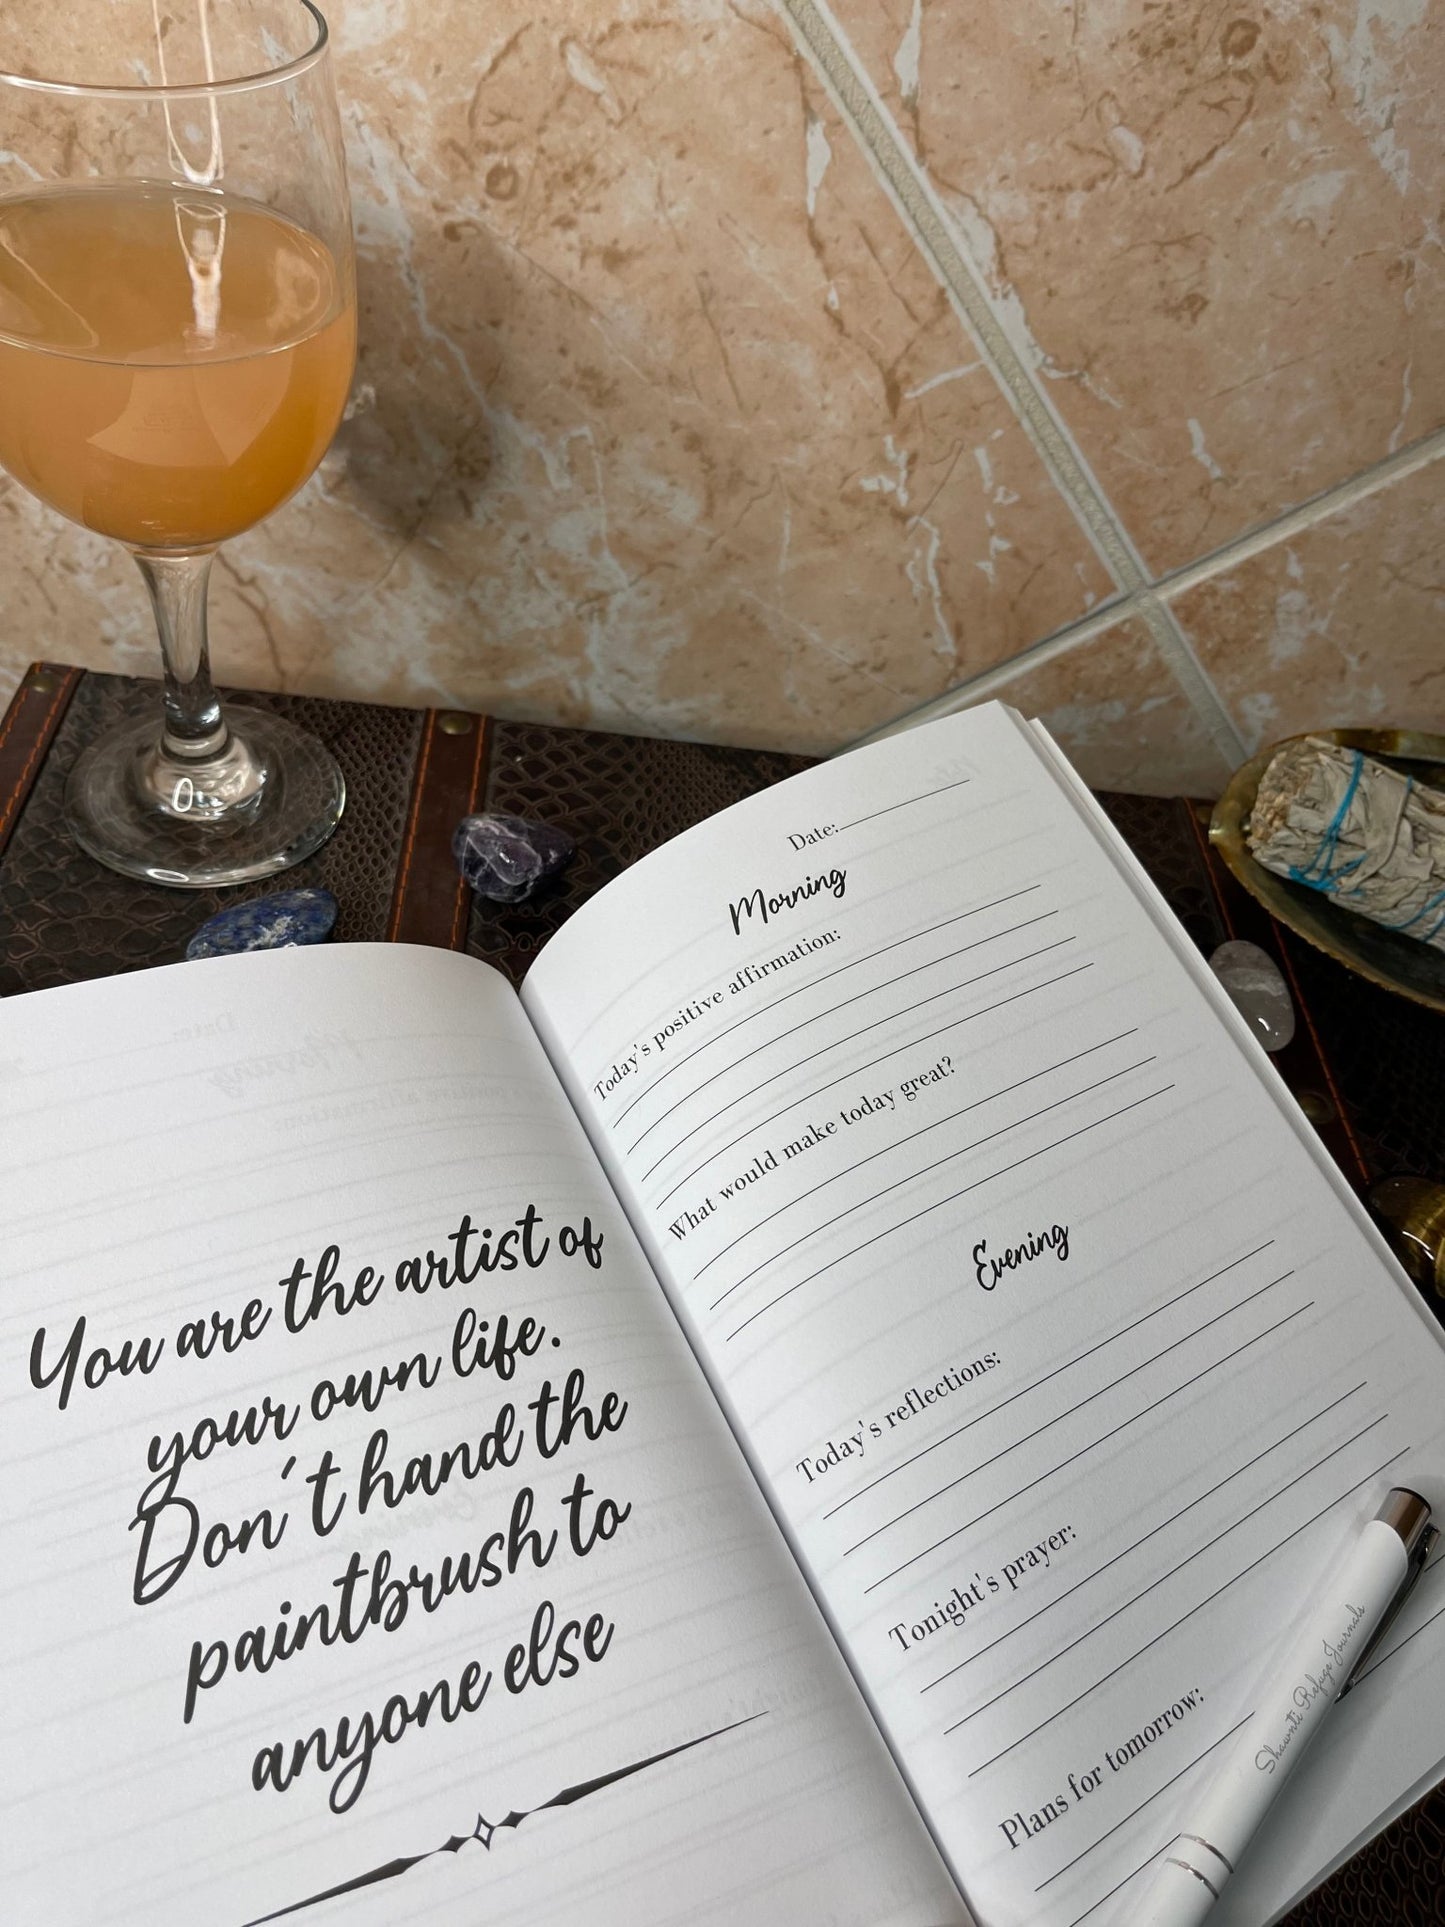 You are the artist of
your own life.
Don't hand the
paintbrush to
anyone else
Date:
Morning
Today's positive affirmation:
What would make today great?
Evening
Today's reflections:
Tonight's prayer:
Plans for tomorrow:
Shawnti Refuge Journals